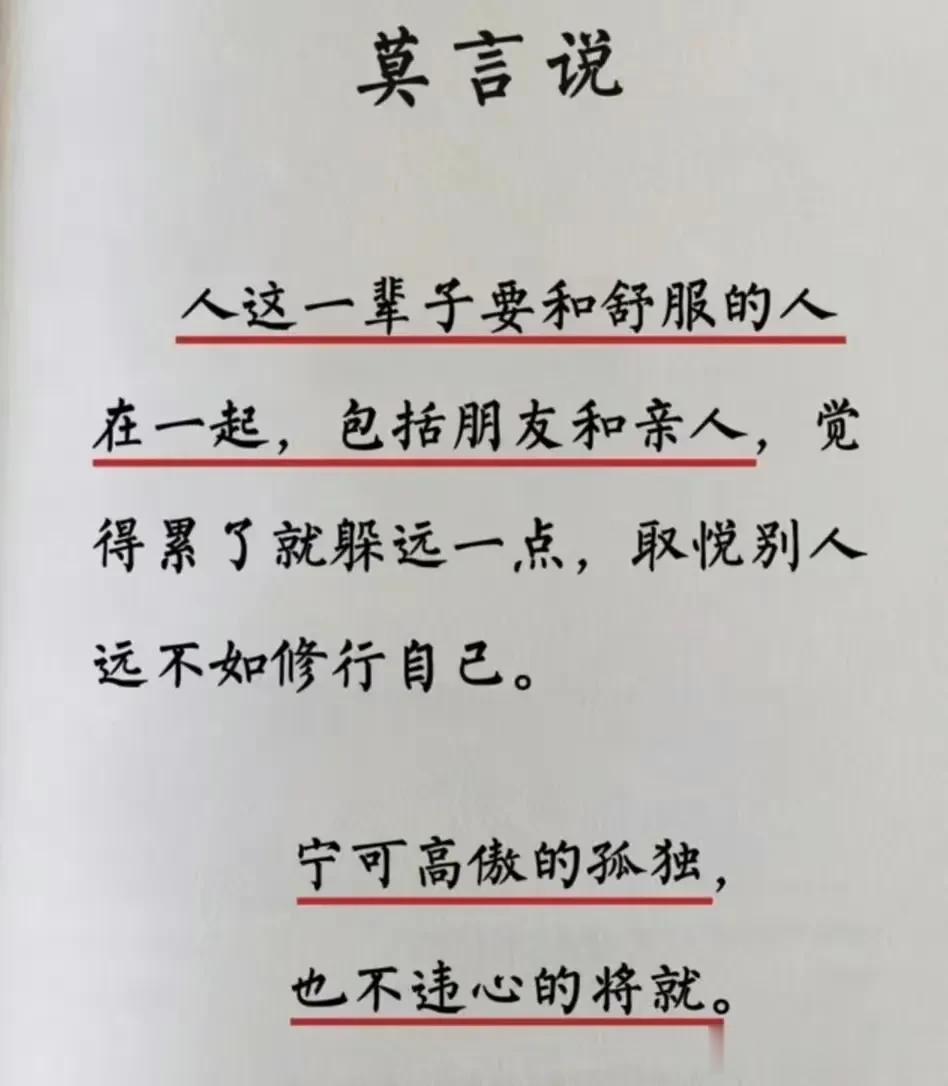 莫言说
人这一辈子要和舒服的人
在一起，包括朋友和亲人，觉
得累了就躲远一点，取悦别人
远不如修行自己。
宁可高傲的孤独，
也不违心的将就。